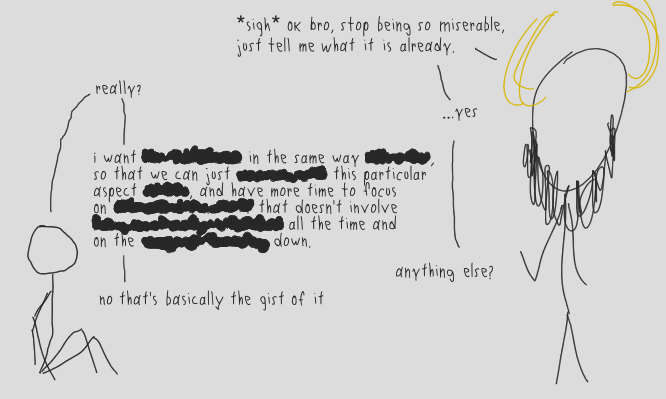 *sigh* ok bro, stop being so miserable,
just tell me what it is already.
really?
...yes
i want in the same way ,
so that we can just this particular
aspect , and have more time to focus
on that doesn't involve
all the time and
on the down.
anything else?
no that's basically the gist of it